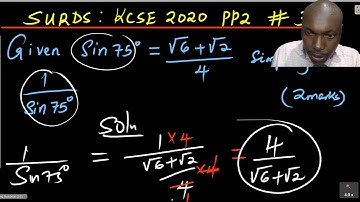 SURDS: KCSE 2020 PP2 #
Given Sin 75° = √6+√2 / 4
1 / Sin 75° (2 marks)
Soln
1 / Sin 75° = 1 ×4 / (√6+√2 / 4) ×4 = 4 / √6+√2